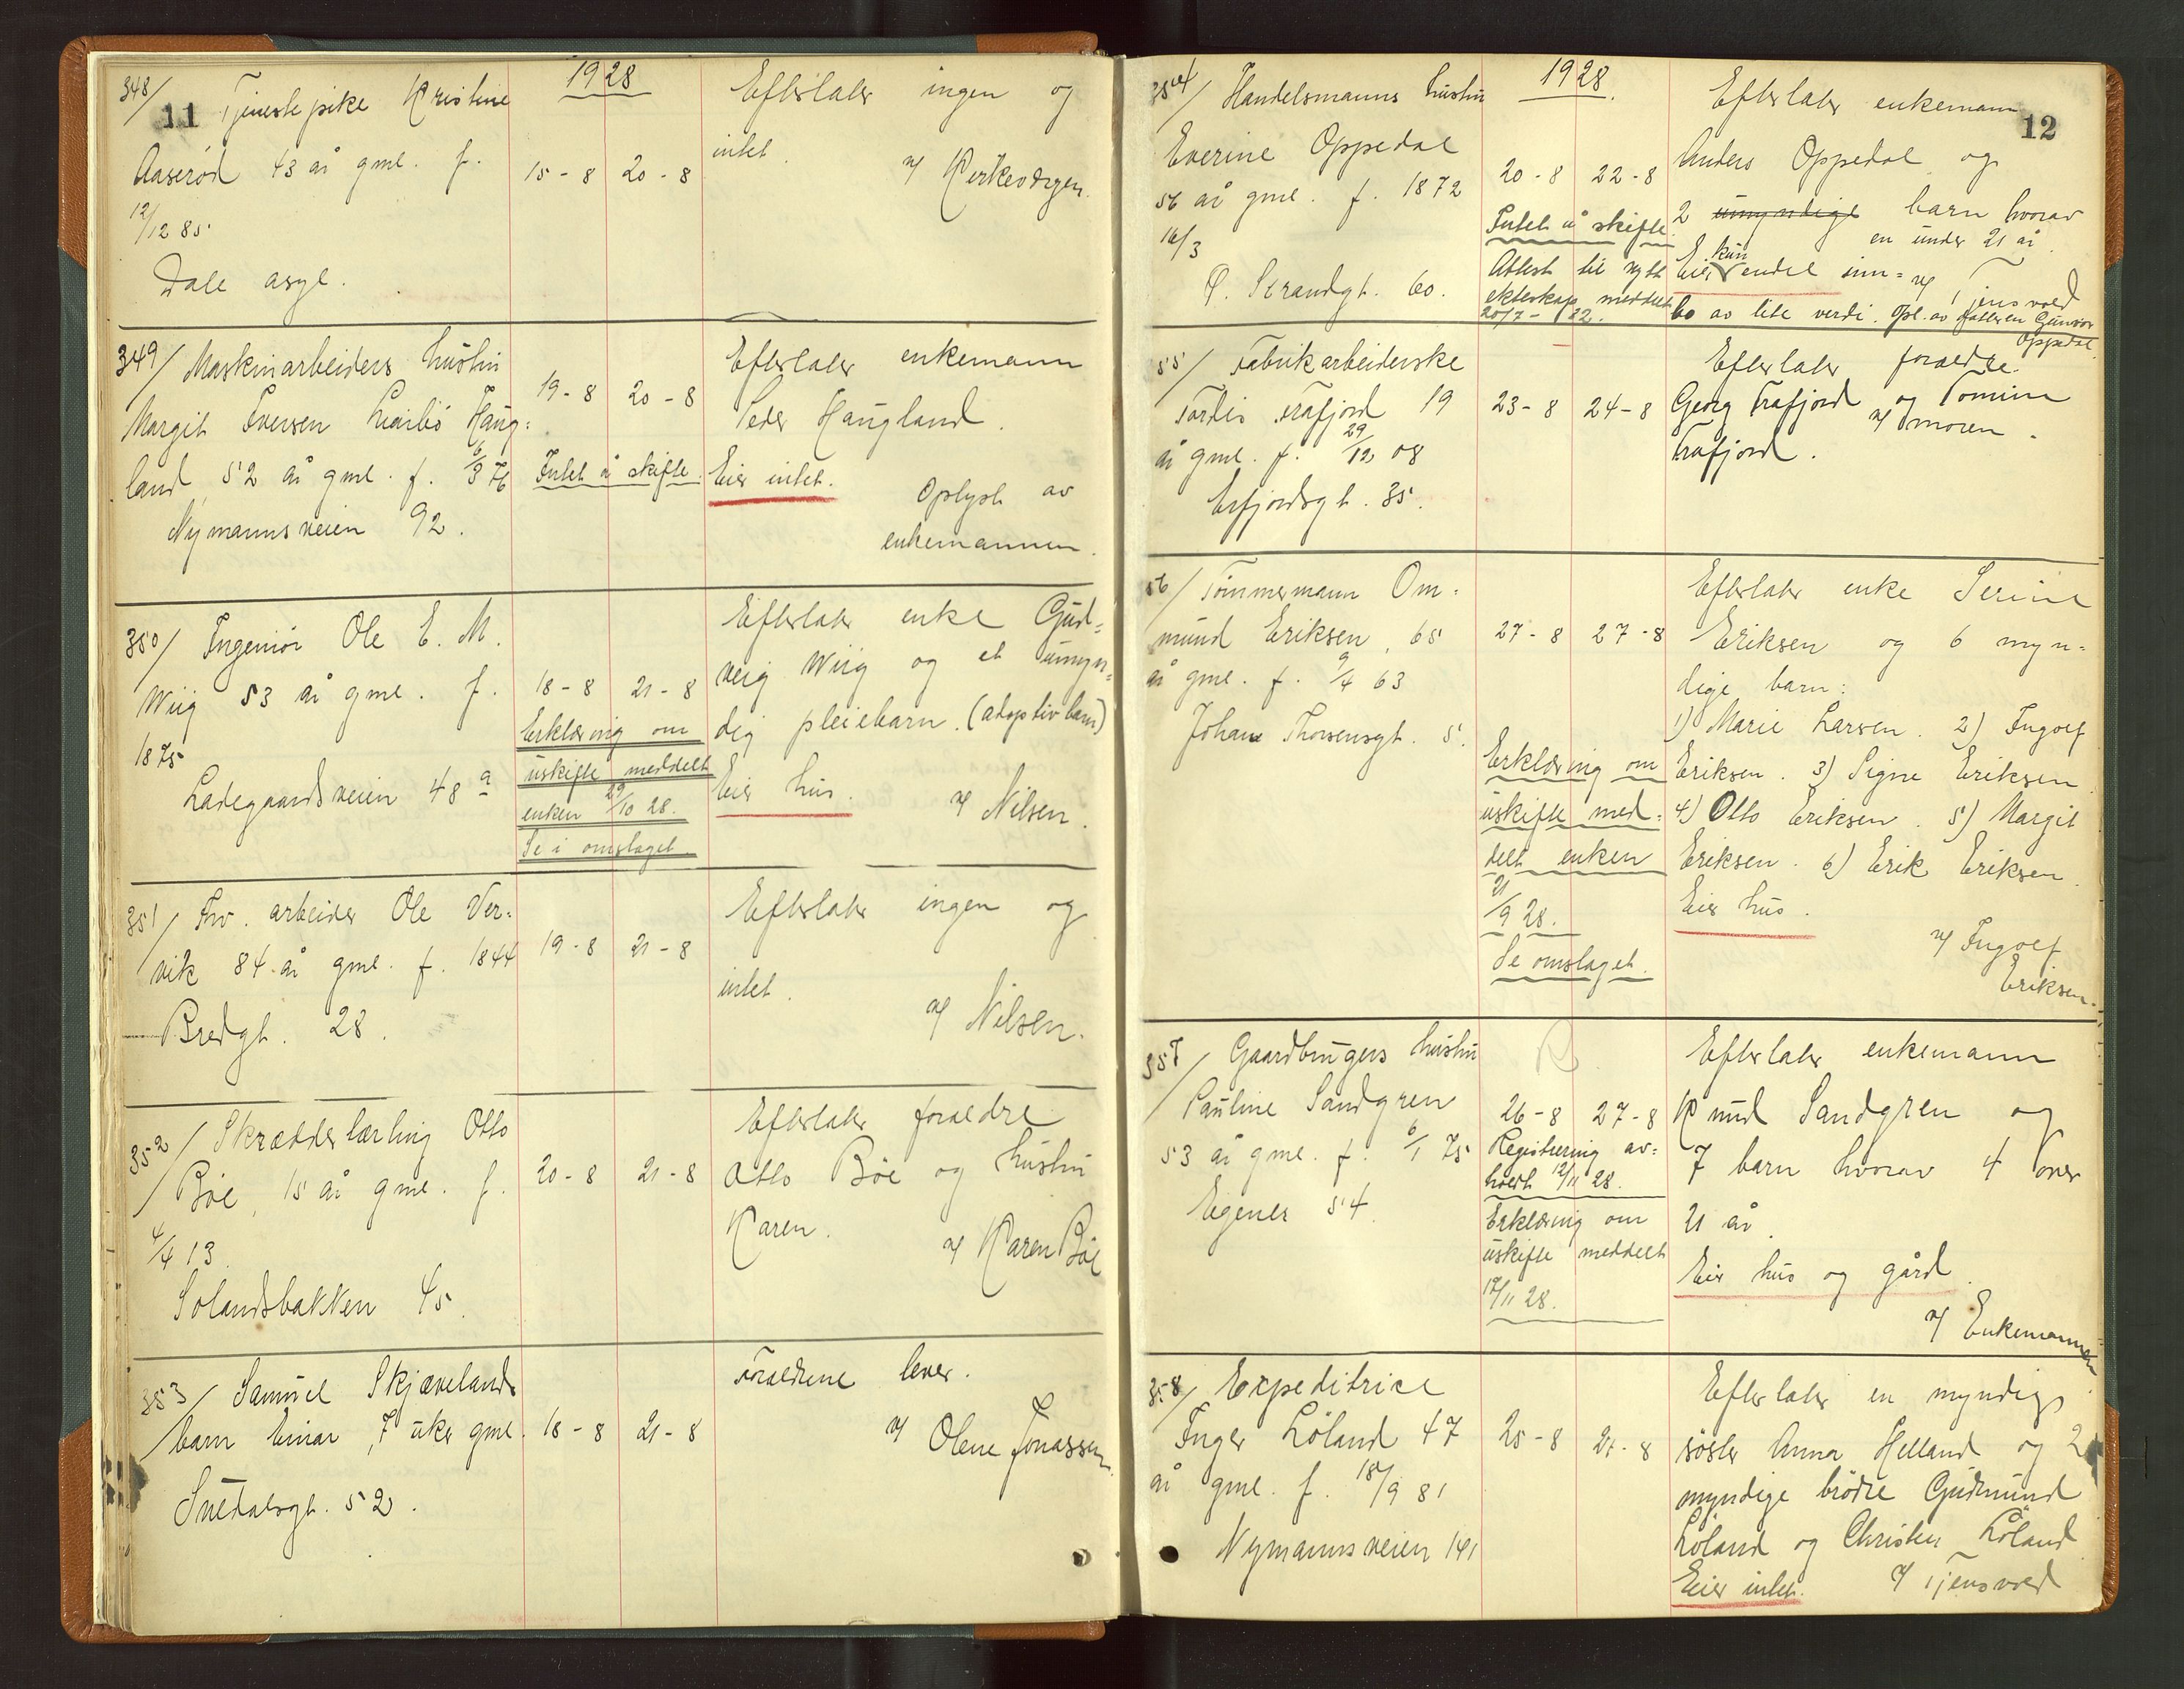 1928
348/ Tjenestepike Kristine
11
Aaserød 43 år gml. f.
12/12 85
Dale asyl.
15-8 20-8
Efterlater ingen og
intet.
v/ Kirkevergen.
349/ Maskinarbeiders hustru
Margit Iversen Haug-
land, 52 år gml. f. 6/3 76
Nymannsveien 92.
19-8 20-8
Intet å skifte.
Efterlater enkemann
Peder Haugland.
Eier intet.
Oplyst av
enkemannen.
350/ Ingeniør Ole E. M.
Wiig 53 år gml. f.
1875
Ladegaardsveien 48 a
18-8 21-8
Erklæring om
uskifte meddelt
enken 29/10 28.
Se i omslaget.
Efterlater enke Gud-
veig Wiig og et umyn-
dig pleiebarn. (adoptivbarn)
Eier hus.
v/ Nilsen.
351/ Fhv. arbeider Ole Ver-
vik 84 år gml. f. 1844
Bredgt. 28.
19-8 21-8
Efterlater ingen og
intet.
v/ Nilsen.
352/ Skrædderlærling Otto
Bøe, 15 år gml. f.
4/4 13.
Solandsbakken 45.
20-8 21-8
Efterlater foraeldre
Otto Bøe og hustru
Karen.
v/ Karen Bøe
353/ Samuel Skjævelands
barn Einar, 7 uker gml.
Suldalsgt. 52.
18-8 21-8
Foraeldrene lever.
v/ Olene Jonassen.
1928.
12
354/ Handelsmanns hustru
Everine Oppedal
56 år gml. f. 1872
16/3
Ø. Strandgt. 60.
20-8 22-8
Intet å skifte.
Attest til nytt
ekteskap meddelt
20/7 - 32.
Efterlater enkemann
Anders Oppedal og
2 umyndige barn hvorav
en under 21 år.
Eier kun endel inn-
v/ Tjensvold
bo av lite verdi. Opl. av datteren Gunvor
Oppedal.
55/ Fabrikarbeiderske
Tordis Frafjord 19
år gml. f. 29/12 08
Erfjordsgt. 35.
23-8 24-8
Efterlater foraeldre
Georg Frafjord og Tomine
Frafjord.
v/ moren.
56/ Tømmermann Om-
mund Eriksen, 65
år gml. f. 9/4 63
Johan Thorsensgt. 5.
27-8 27-8
Erklæring om
uskifte med-
delt enken
21/9 28.
Se omslaget.
Efterlater enke Serine
Eriksen og 6 myn-
dige barn:
1) Marie Larsen. 2) Ingolf
Eriksen. 3) Signe Eriksen
4) Otto Eriksen. 5) Margit
Eriksen. 6) Erik Eriksen.
Eier hus.
v/ Ingolf
Eriksen.
357/ Gaardbrugers hustru
Pauline Sandgren
53 år gml. f. 6/1 75
Egenes 54.
26-8 27-8
Registrering av-
holdt 12/11 28.
Erklæring om
uskifte meddelt
17/11 28.
Efterlater enkemann
Knud Sandgren og
7 barn hvorav 4 over
21 år.
Eier hus og gård.
v/ Enkemannen
358/ Expeditrice
Inger Løland 47
år gml. f. 18/9 81
Nymannsveien 141
25-8 27-8
Efterlater en myndig
søster Anna Helland og 2
myndige brødre Gudmund
Løland og Christen Løland
Eier intet.
v/ Tjensvold